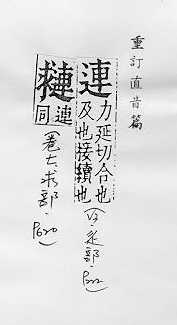 重訂直音篇
連 力延切合也
及也接續也
(卷七辵部.
連
同
(卷七求部.